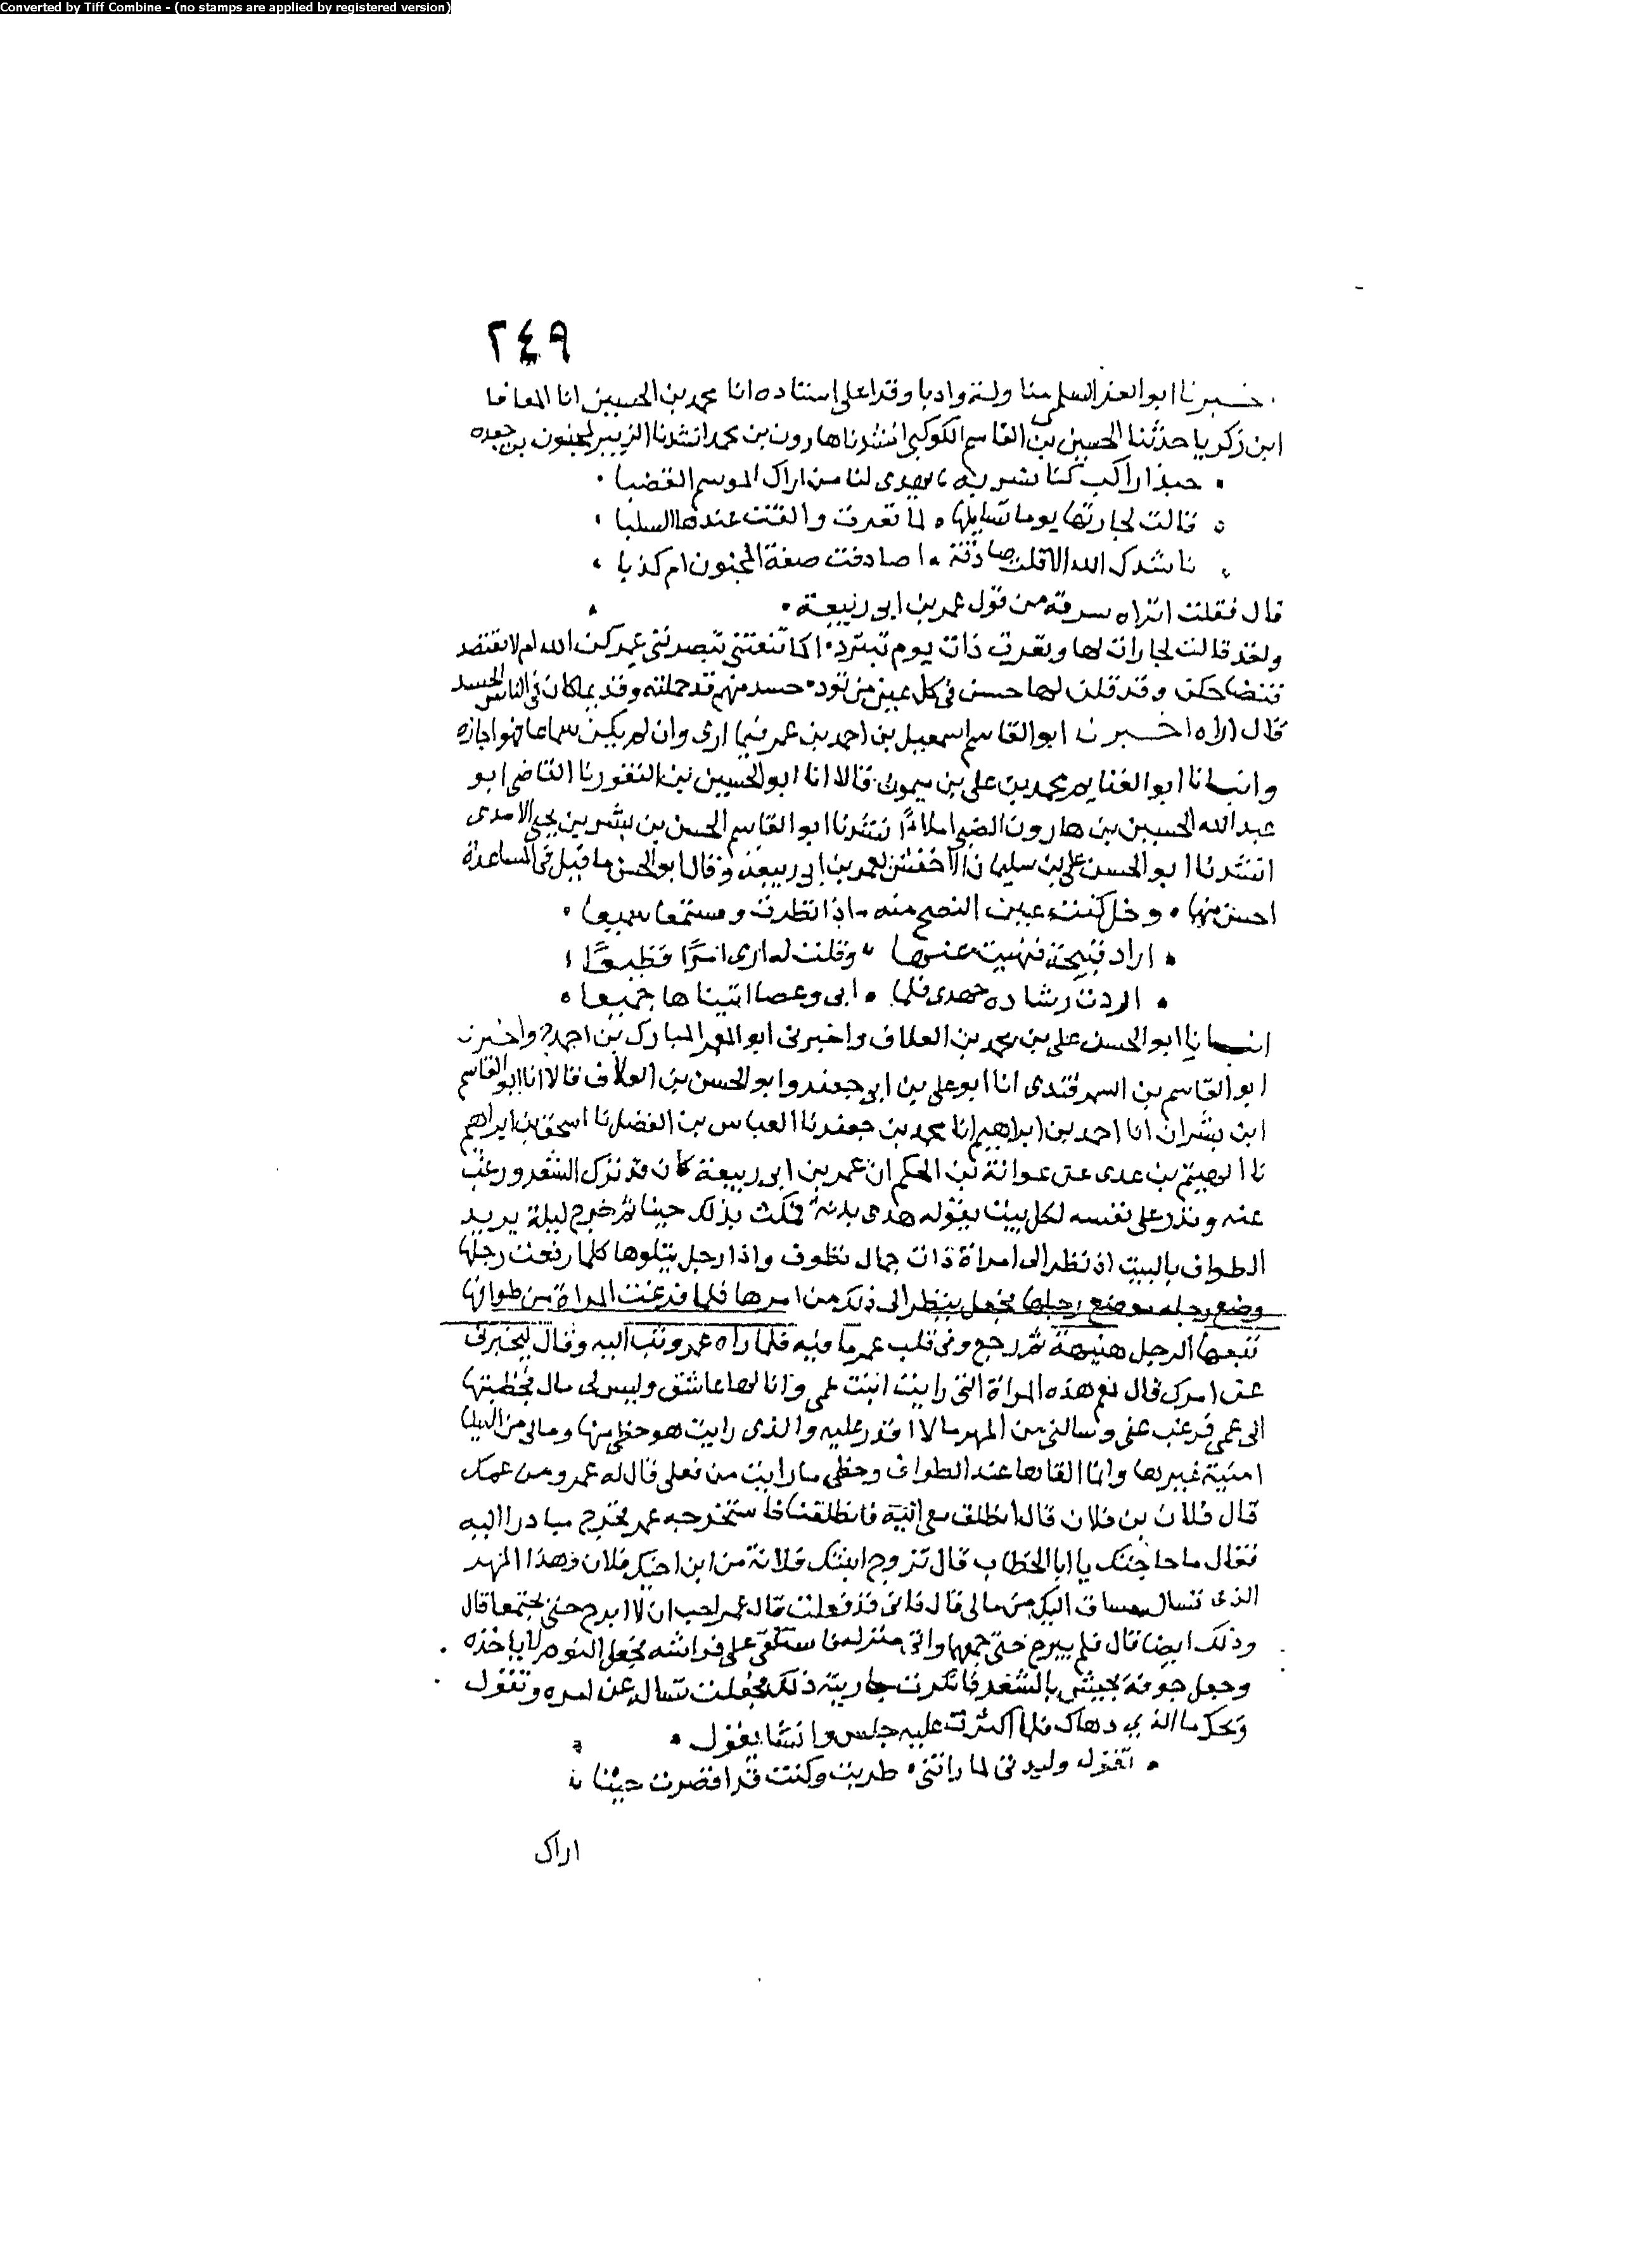 Converted by Tiff Combine - (no stamps are applied by registered version)
٢٤٩
خبرنا ابو العز السلمي منا ولة واذنا وقرا على اسناده انا محمد بن الحسين انا المعافا
ابن زكريا حدثنا الحسين بن القاسم الكوكبي انشدنا هارون بن محمد انشدنا الزبير لمجنون بن جعده
حبذا راكب كنا نسر به يهدى لنا من اراك الموسم القضبا
قالت لجارتها يوما تسايلها لما تعرت والقت عندها السلبا
ناشدتك الله الا قلت صادقة اصادفت صفة المجنون ام كذبا
قال فقلت اتراه سرقه من قول عمر بن ابى ربيعة
ولقد قالت لجارات لها وتعرت ذات يوم تبترد اكما تنعتنى تبصرننى عمركن الله ام لا يقتصد
فتضاحكن وقد قلن لها حسن فى كل عين من تود حسد منهم قد حملنه وقديما كان فى الناس الحسد
قال اراه اخبرنا ابو القاسم اسمعيل بن احمد بن عمر فيما ارى وان لم يكن سماعا فهو اجازه
وانبانا ابو الغنايم محمد بن على بن ميمون قالا انا ابو الحسين بن النقور نا القاضى ابو
عبد الله الحسين بن هارون الضبى املاءً انشدنا ابو القاسم الحسن بن بشر بن يحيى الامدى
انشدنا ابو الحسن على بن سليمان الاخفش لعمر بن ابى ربيعة وقال ابو الحسن ما قيل فى المساعدة
احسن منها وخل كنت عين النصح منه اذا نظرت ومستمعا سميعا
اراد قبيحة فنهيت عنها وقلت له ارى امرًا فظيعًا
اردت رشاده جهدى فلما ابى وعصا اتيناها جميعا
انبانا ابو الحسن على بن محمد بن العلاف واخبرنى ابو المعمر المبارك بن احمد واخبرنا
ابو القاسم بن السمرقندى انا ابو على بن ابى جعفر وابو الحسن بن العلاف قالا انا ابو القاسم
ابن بشران انا احمد بن ابراهيم انا محمد بن جعفر نا العباس بن الفضل نا اسحق بن ابراهيم
نا الهيثم بن عدى عن عوانة بن الحكم ان عمر بن ابى ربيعة كان قد ترك الشعر ورغب
عنه ونذر على نفسه لكل بيت يقوله هدى بدنة فمكث بذلك حينا ثم خرج ليلة يريد
الطواف بالبيت اذ نظر الى امراة ذات جمال تطوف واذا رجل يتلوها كلما رفعت رجلها
وضع رجله موضع رجلها فجعل ينظر الى ذلك من امرها فلما فرغت المراة من طوافها
تبعها الرجل هنيهة ثم رجع وفى قلب عمر ما فيه فلما راه عمر وثب اليه وقال لتخبرنى
عن امرك قال نعم هذه المراة التى رايت ابنت عمى وانا لها عاشق وليس لى مال فخطبتها
الى عمى فرغب عنى وسالنى من المهر ما لا اقدر عليه والذى رايت هو حظى منها ومالى من الدنيا
امنية غيرها وانما القاها عند الطواف وحظى ما رايت من فعلى قال له عمر ومن عمك
قال فلان بن فلان قال انطلق معى اليه فانطلقنا فاستخرجه عمر فخرج مبادرا اليه
فقال ما حاجتك يا ابا الخطاب قال تزوج ابنتك فلانة من ابن اخيك فلان وهذا المهر
الذى تسال مساق اليك من مالى قال فانى قد فعلت قال عمر احب ان لا ابرح حتى يجتمعا قال
وذلك ايضا قال فلم يبرح حتى جمعهما واتى منزله فاستلقى على فراشه فجعل النوم لا ياخذه
وجعل جوفه يجيش بالشعر فانكرت جاريته ذلك فجعلت تساله عن امره وتقول
ويحك ما الذى دهاك فلما اكثرت عليه جلس وانشا يقول
تقول وليدتى لما راتنى طربت وكنت قد اقصرت حينا
اراك